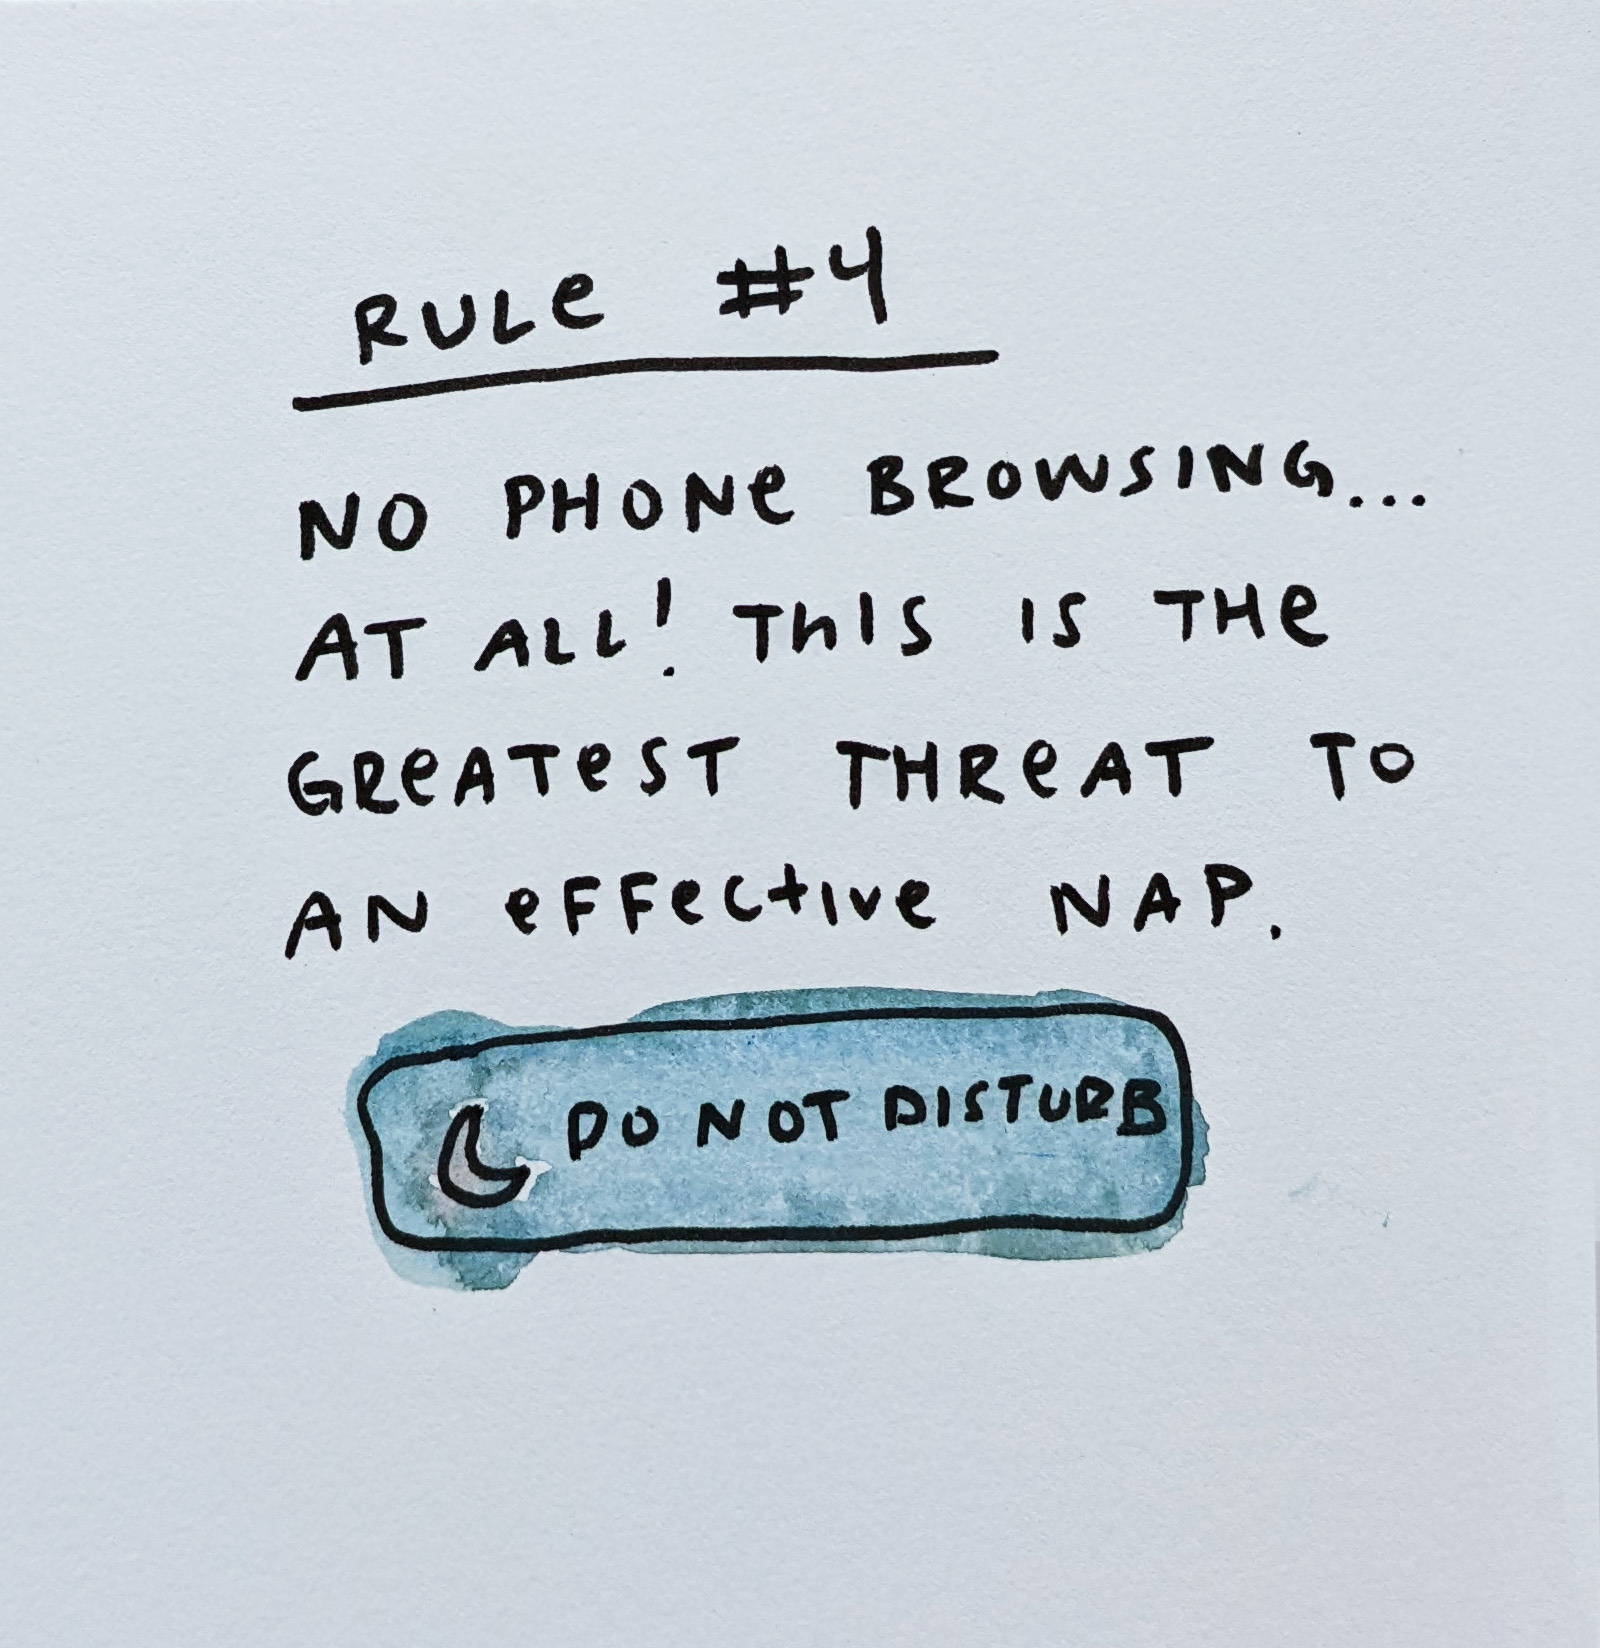 RULe #4
NO PHONe BROWSING...
AT ALL! ThIS IS THe
GReATeST THReAT TO
AN eFFectIve NAP.
DO NOT DISTURB